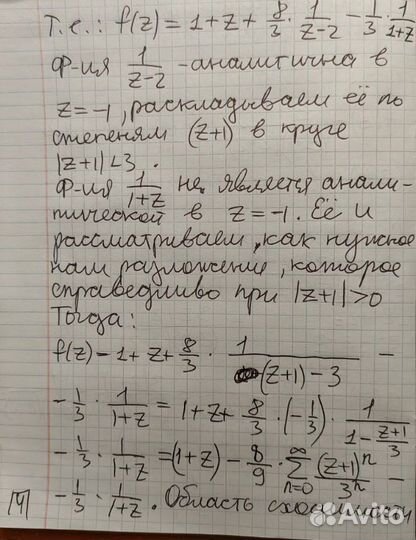 т.е.: f(z) = 1+z+ 8/3 · 1/(z-2) - 1/3 · 1/(1+z)
Ф-ия 1/(z-2) - аналитична в
z=-1, раскладываем её по
степеням (z+1) в круге
|z+1|<3.
Ф-ия 1/(1+z) не является анали-
тической в z=-1. Её и
рассматриваем, как нужное
нам разложение, которое
справедливо при |z+1|>0
Тогда:
f(z)=1+z+ 8/3 · 1/((z+1)-3) -
- 1/3 · 1/(1+z) = 1+z+ 8/3 · (-1/3) · 1/(1-(z+1)/3)
- 1/3 · 1/(1+z) = (1+z) - 8/9 · ∑_{n=0}^{∞} (z+1)^n/3^n -
- 1/3 · 1/(1+z). Область сходимости
|4|
Avito